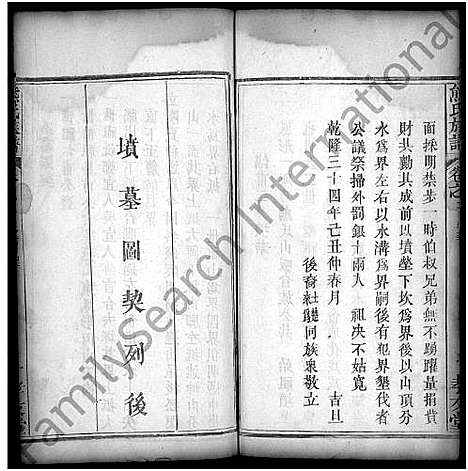 熊氏族譜
面採明禁步一時伯叔兄弟無不踴躍量捐
財共勷其成前以墳塋下坎爲界後以山頂分
水爲界左右以水溝爲界嗣後有犯界墾伐者
公議祭掃外罰銀十兩入 祖央不姑寬
乾隆三十四年己丑仲春月 吉旦
後裔社驍同族衆敬立
墳墓圖契列後
FamilySearch International